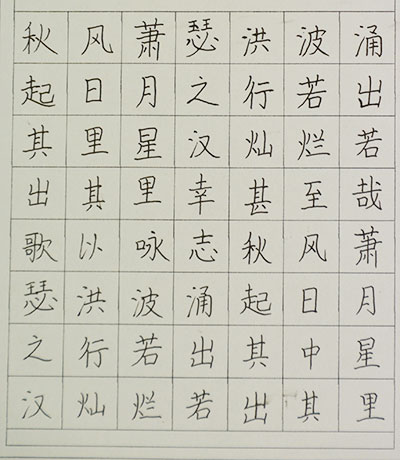 秋风萧瑟洪波涌
起日月之行若出
其里星汉灿烂若
出其里幸甚至哉
歌以咏志秋风萧
瑟洪波涌起日月
之行若出其中星
汉灿烂若出其里